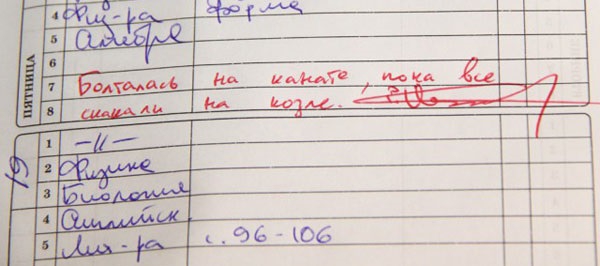 4 Физ-ра форма
5 Алгебра
6
7 Болталась на канате, пока все
8 скакали на козле.
ПЯТНИЦА
1 -//-
2 Физика
3 Биология
4 Английск.
5 Лит-ра с. 96-106